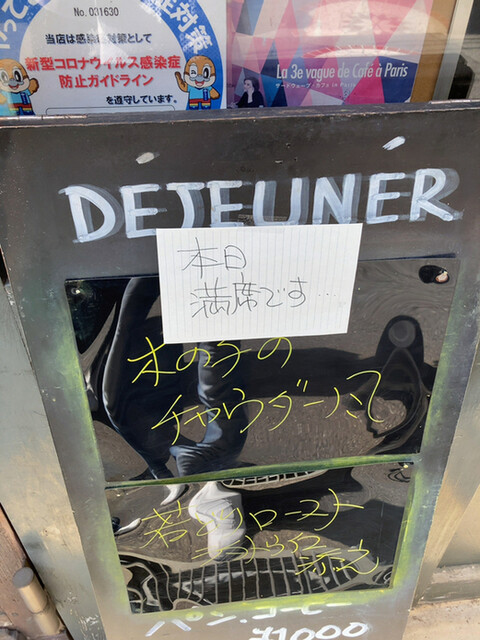 No. 031630
当店は感染症対策として
新型コロナウイルス感染症
防止ガイドライン
を遵守しています。
La 3e vague de Café à Paris
サードウェーブ・カフェ in Paris
DEJEUNER
本日
満席です…
木の子の
チャウダー
若どりロースト
添え
パン・コーヒー
¥1000